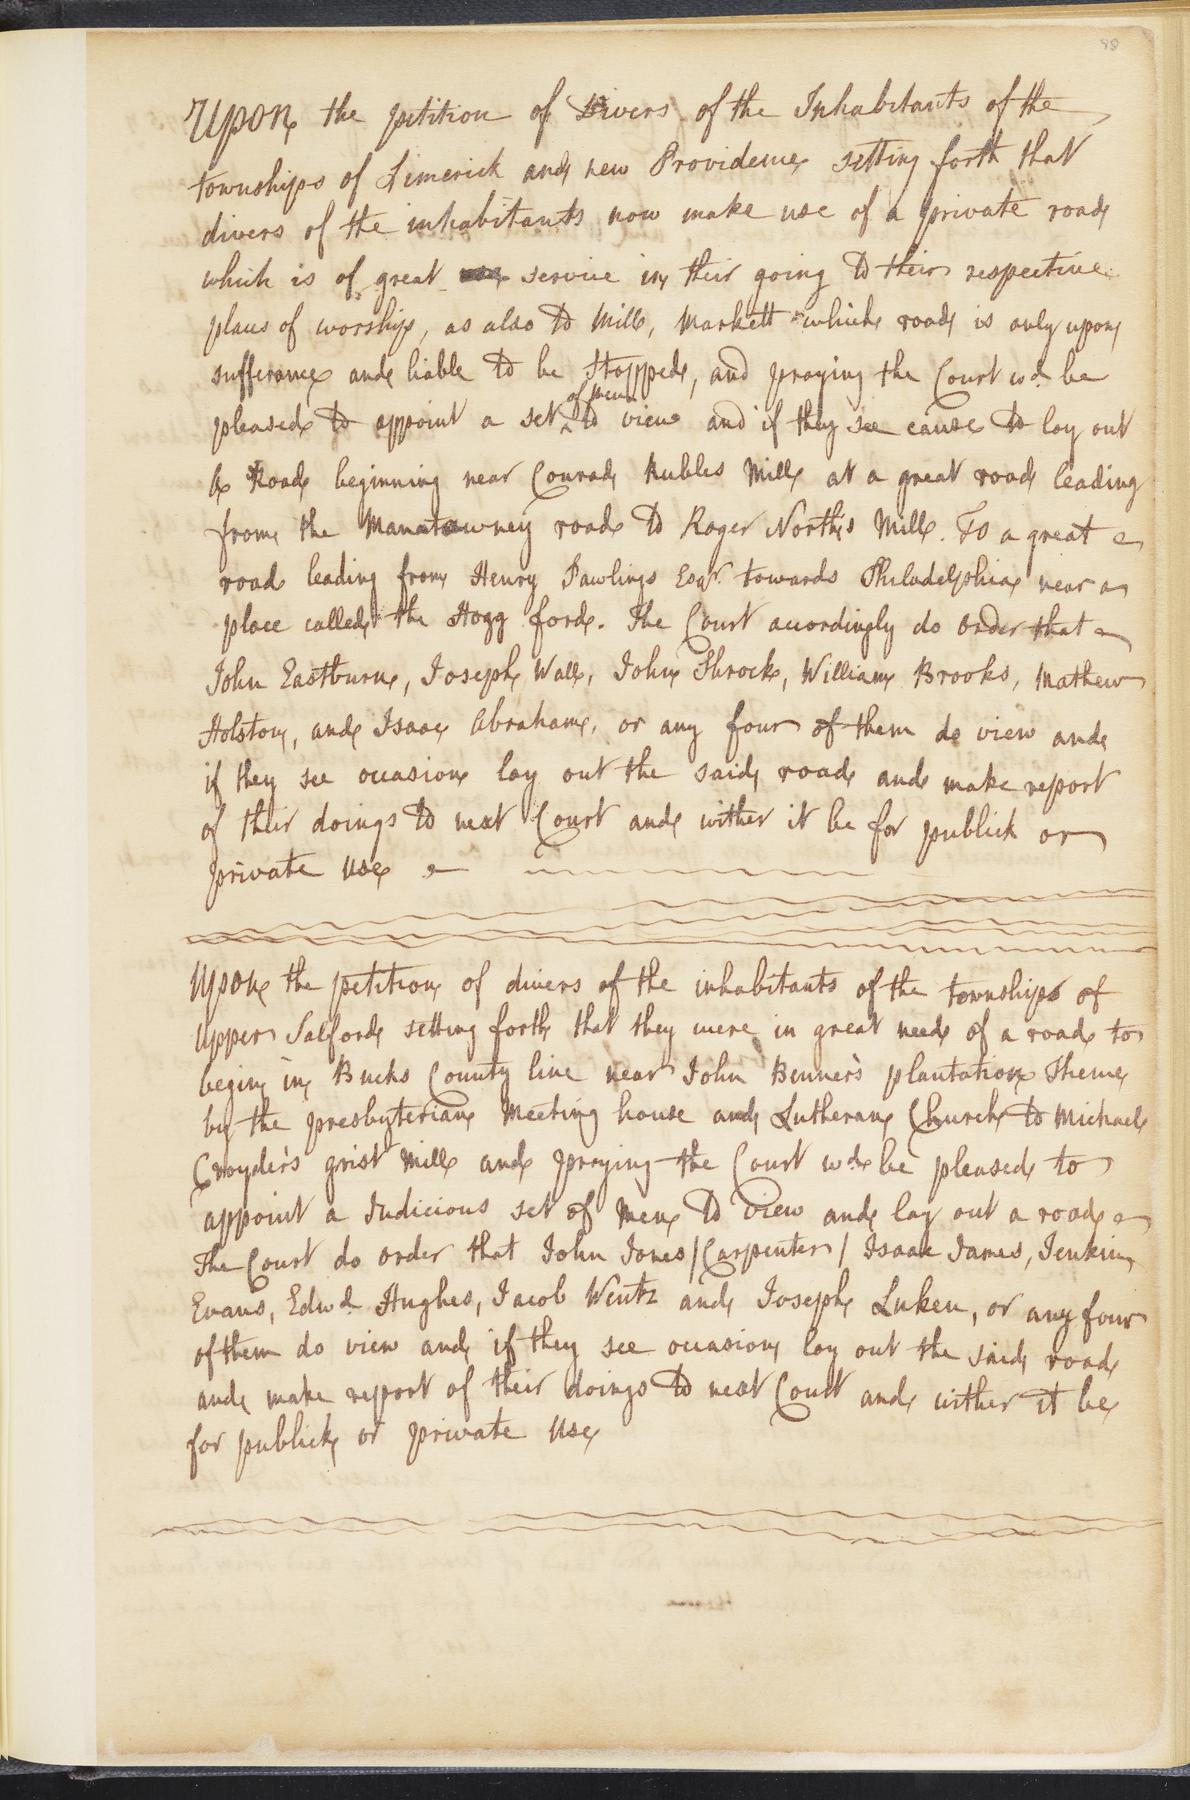 Upon the petition of Divers of the Inhabitants of the
townships of Limerick and new Providence setting forth that
divers of the inhabitants now make use of a private road
which is of great service in their going to their respective
places of worship, as also to Mill, Markett which road is only upon
sufferance and liable to be Stopped, and praying the Court wd. be
of men
pleased to appoint a set ^ to view and if they see cause to lay out
a Road beginning near Conrad Kubles Mill at a great road leading
from the Manatawney road to Roger North's Mill. To a great
road leading from Henry Pawlings Esqr. towards Philadelphia near a
place called the Hogg ford. The Court accordingly do order that
John Eastburn, Joseph Wall, John Shrock, William Brooks, Mathew
Holston, and Isaac Abraham, or any four of them do view and
if they see occasion lay out the said road and make report
of their doings to next Court and wither it be for publick or
private use
Upon the petition of divers of the inhabitants of the townships of
Upper Salford setting forth that they were in great need of a road to
begin in Bucks County line near John Benner's plantation Thence
by the presbyterian Meeting house and Lutheran Church to Michael
Croyder's grist Mill and praying the Court wd. be pleased to
appoint a Judicious set of Men to view and lay out a road
The Court do order that John Jones /Carpenter/ Isaac James, Jenkin
Evans, Edwd. Hughes, Jacob Wentz and Joseph Luken, or any four
of them do view and if they see occasion lay out the said road
and make report of their doings to next Court and wither it be
for publick or private use